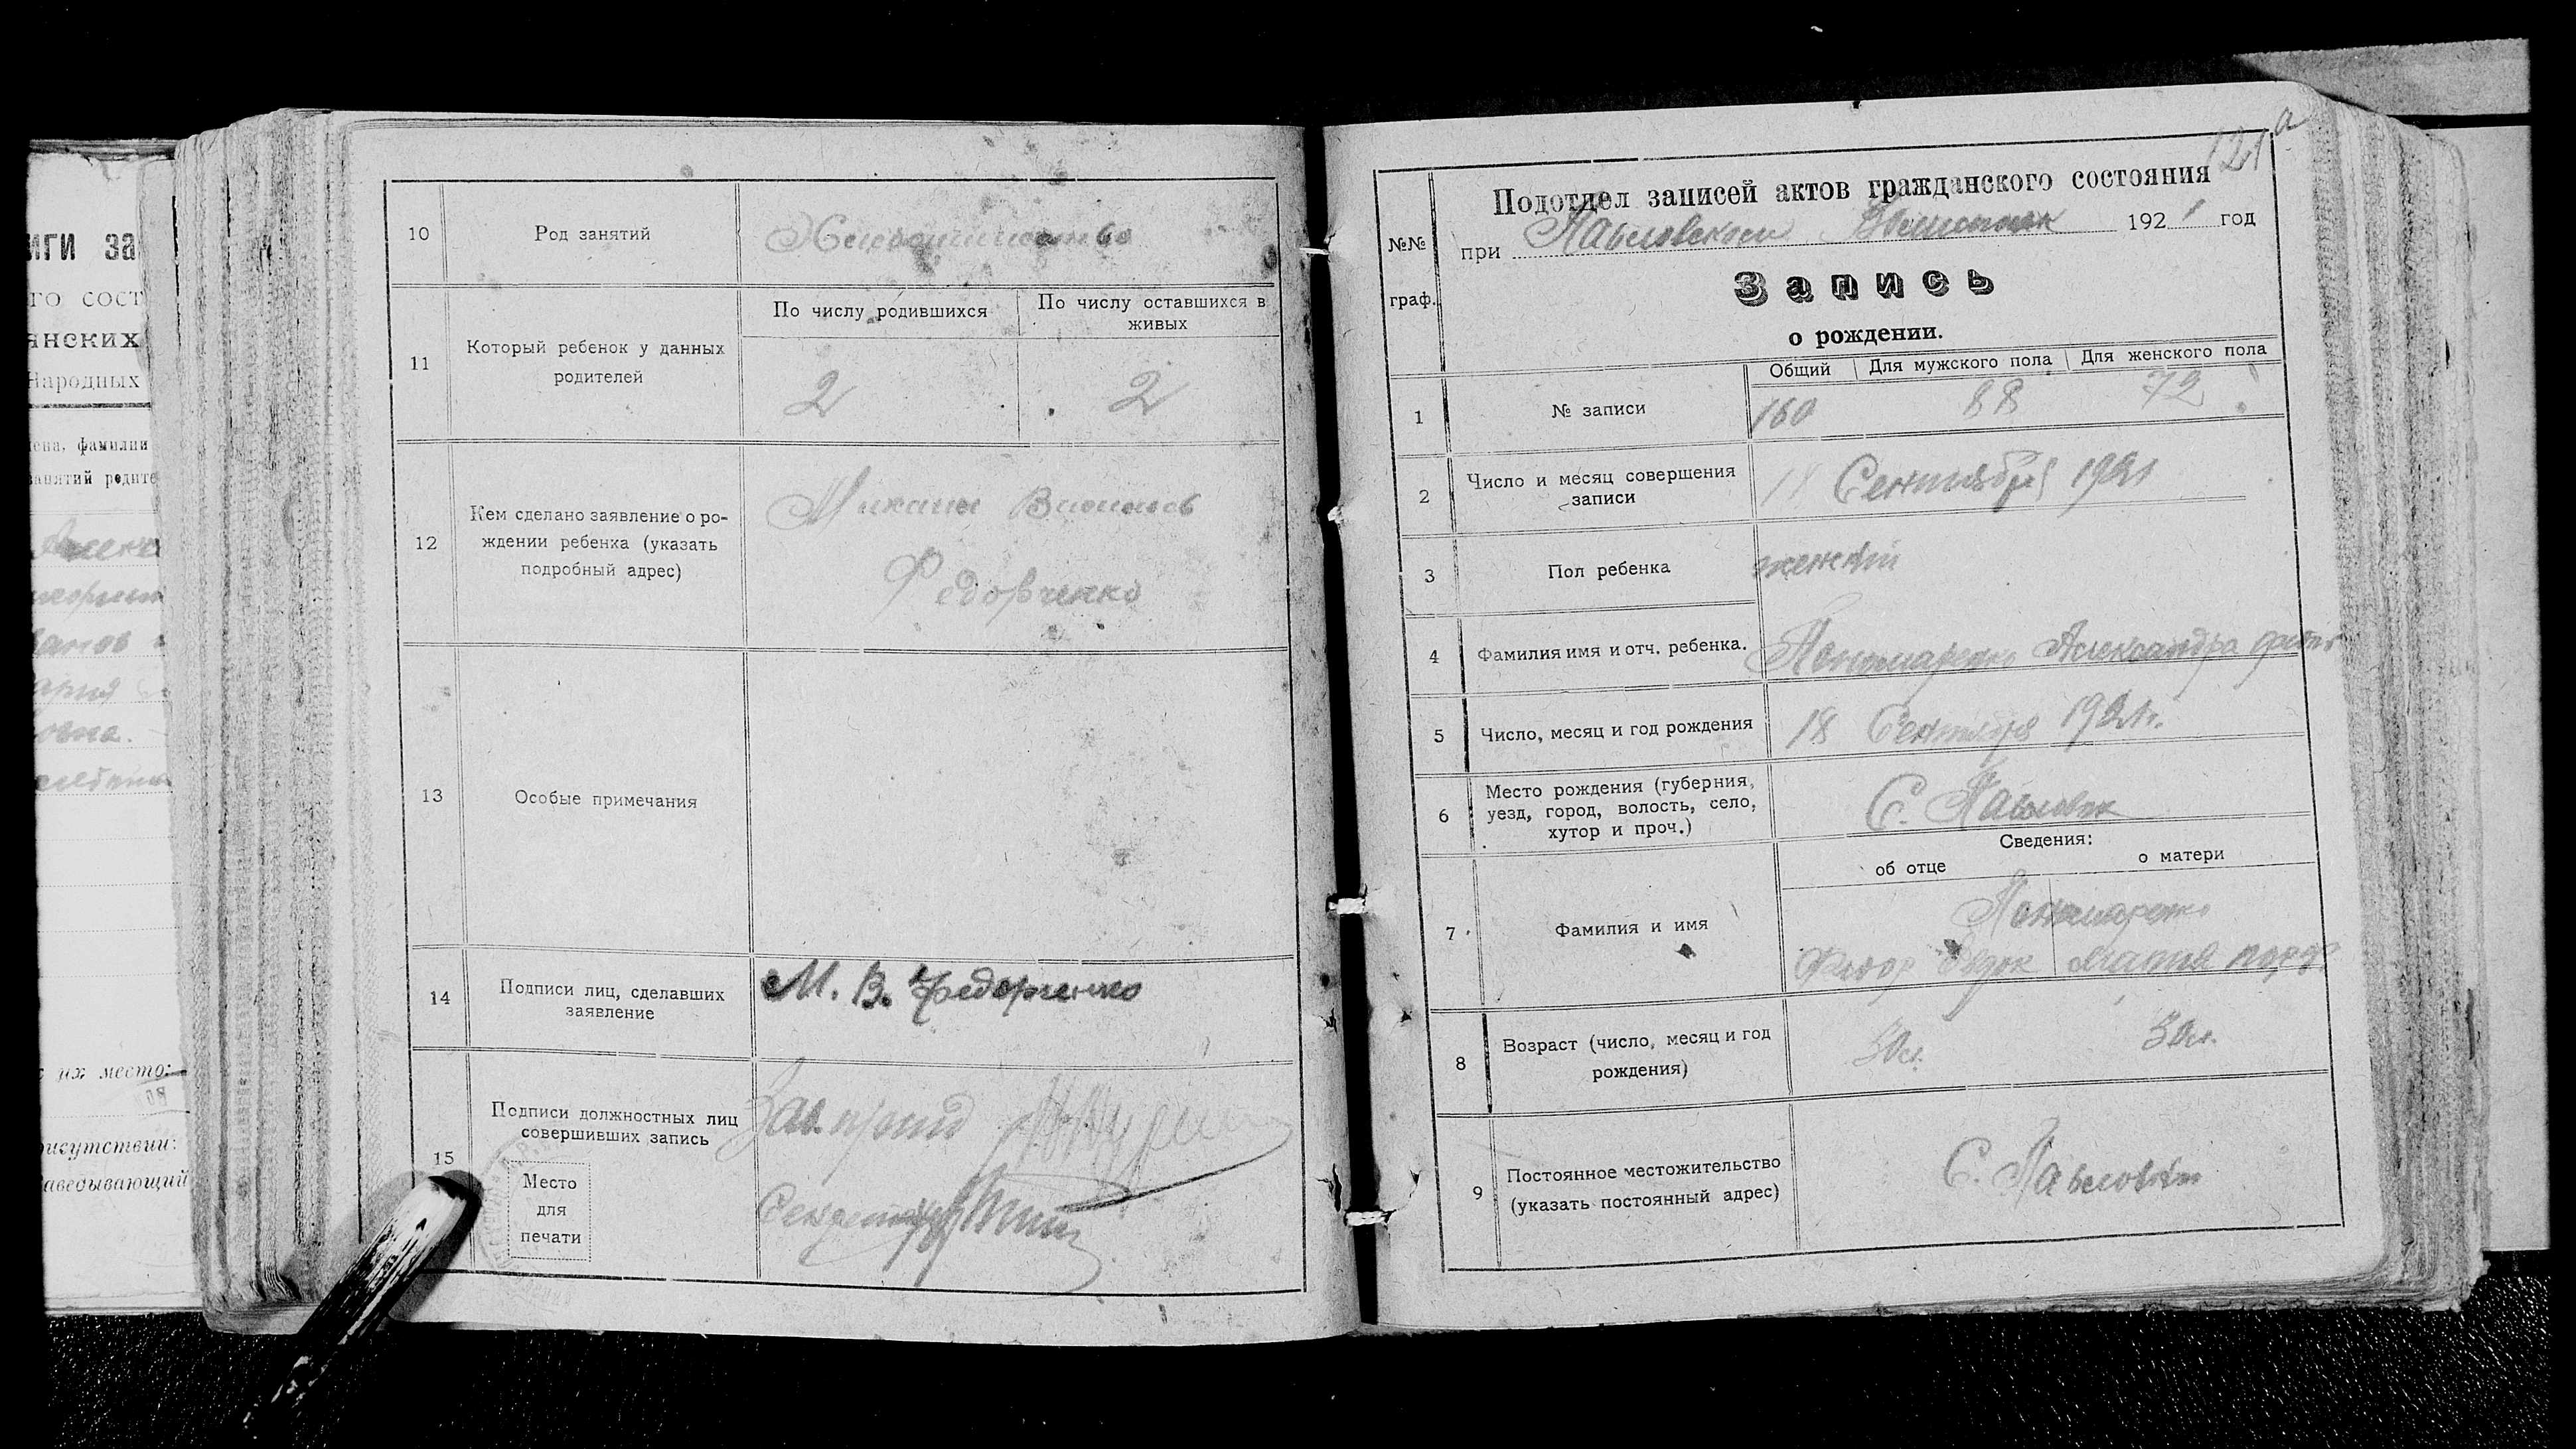 иги за
го сост
янских
Народных
ена, фамилии
занятий родите
ария
овна.
их место:
рисутствии:
аведывающий
10 Род занятий Хлебопашество
11 Который ребенок у данных родителей
По числу родившихся
По числу оставшихся в живых
2 2
12 Кем сделано заявление о ро-
ждении ребенка (указать
подробный адрес)
Федорченко
13 Особые примечания
14 Подписи лиц, сделавших
заявление
М. В. Федорченко
15 Подписи должностных лиц
совершивших запись
Место
для
печати
Секретарь
121 а
№№
граф.
Подотдел записей актов гражданского состояния
при Павловском 1921 год
Запись
о рождении.
Общий Для мужского пола Для женского пола
1 № записи 160 88 72
2 Число и месяц совершения
записи
Сентября 1921
3 Пол ребенка женский
4 Фамилия имя и отч. ребенка. Пономаренко Александра
5 Число, месяц и год рождения 18 Сентября 1921 г.
6 Место рождения (губерния,
уезд, город, волость, село,
хутор и проч.)
С. Павловка
Сведения:
об отце о матери
7 Фамилия и имя
Пономаренко
8 Возраст (число, месяц и год
рождения)
30 л. 30 л.
9 Постоянное местожительство
(указать постоянный адрес)
С. Павловка